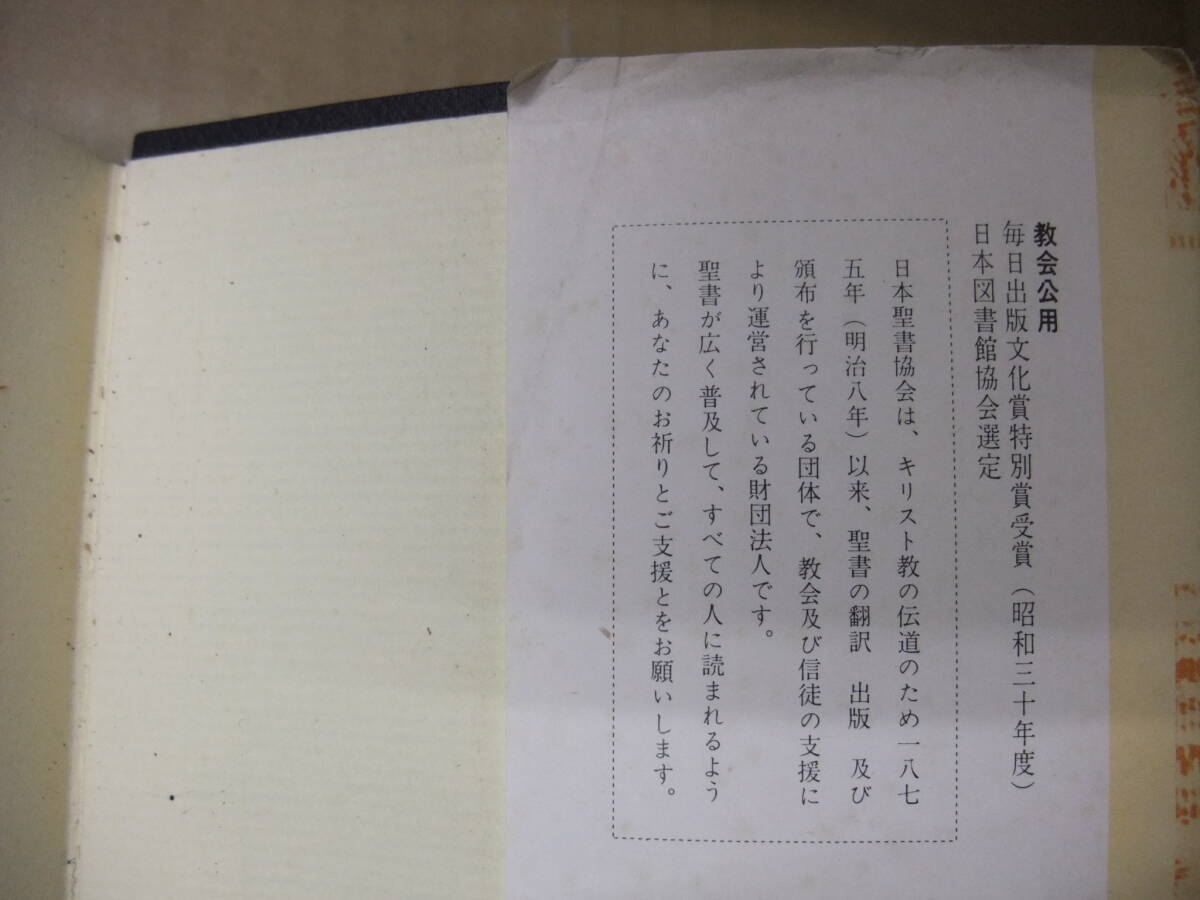 教会公用
毎日出版文化賞特別賞受賞（昭和三十年度）
日本図書館協会選定
日本聖書協会は、キリスト教の伝道のため一八七
五年（明治八年）以来、聖書の翻訳　出版　及び
頒布を行っている団体で、教会及び信徒の支援に
より運営されている財団法人です。
聖書が広く普及して、すべての人に読まれるよう
に、あなたのお祈りとご支援とをお願いします。